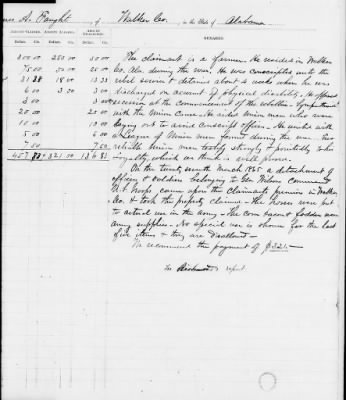 A. Faught, of Walker Co. in the State of Alabama
AMOUNT CLAIMED. AMOUNT ALLOWED. AMOUNT DISALLOWED. REMARKS.
Dolls. Cts. Dolls. Cts. Dolls. Cts.
300 00 250 00 50 00 The claimant is a farmer. He resided in Walker
75 00 50 00 25 00 Co. Ala during the war. He was conscripted into the
31 28 18 00 13 28 rebel service & detained about 4 weeks when he was
6 00 3 00 3 00 discharged on account of physical disability. He opposed
3 00 3 00 secession at the commencement of the rebellion. Sympathized
20 00 20 00 with the Union Cause. He aided Union men who were
10 00 10 00 laying out to avoid conscript officers. He united with
5 00 5 00 a League of Union men formed during the war. Two
7 00 7 00 reliable Union men testify strongly & positively to his
457 321 00 loyalty, which we think is well proven.
On the twenty seventh March 1865 a detachment of
officers & soldiers belonging to Gen Wilsons command
U.S. troops came upon the Claimants premises in Walker
Co. & took the property claimed. The horses were put
to actual use in the army. The corn bacon & fodder were
army supplies. No special use is shown for the last
five items & they are Disallowed.
We recommend the payment of $321.
report